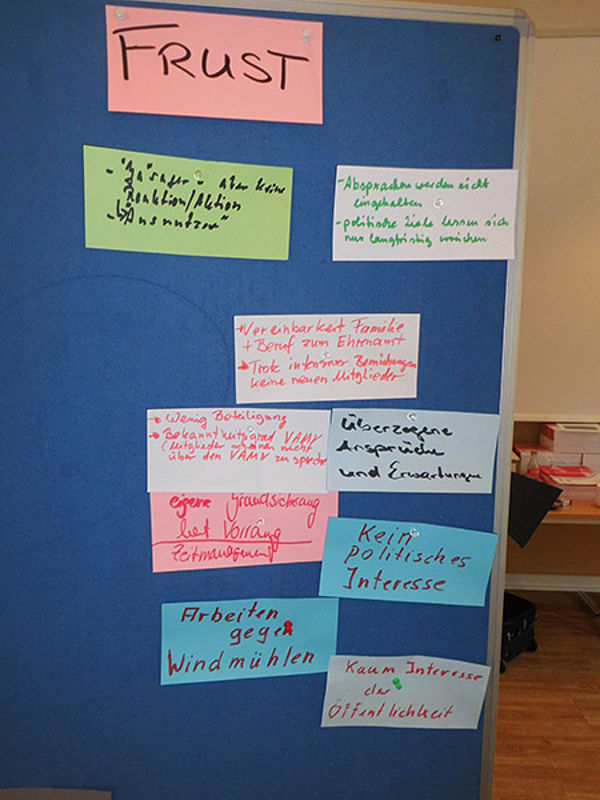 FRUST
- "Ja"sager - aber keine
Reaktion/Aktion
- "Ausnutzen"
- Absprachen werden nicht
eingehalten
- politische Ziele lassen sich
nur langfristig erreichen
→ Vereinbarkeit Familie
+ Beruf zum Ehrenamt
→ Trotz intensiver Bemühungen
keine neuen Mitglieder
→ Wenig Beteiligung
→ Bekanntheitsgrad VAMV
(Mitglieder nicht
über den VAMV zu sprechen
Überzogene
Ansprüche
und Erwartungen
eigene Grundsicherung
hat Vorrang
Zeitmanagement
Kein
politisches
Interesse
Arbeiten
gegen
Windmühlen
Kaum Interesse
der
Öffentlichkeit